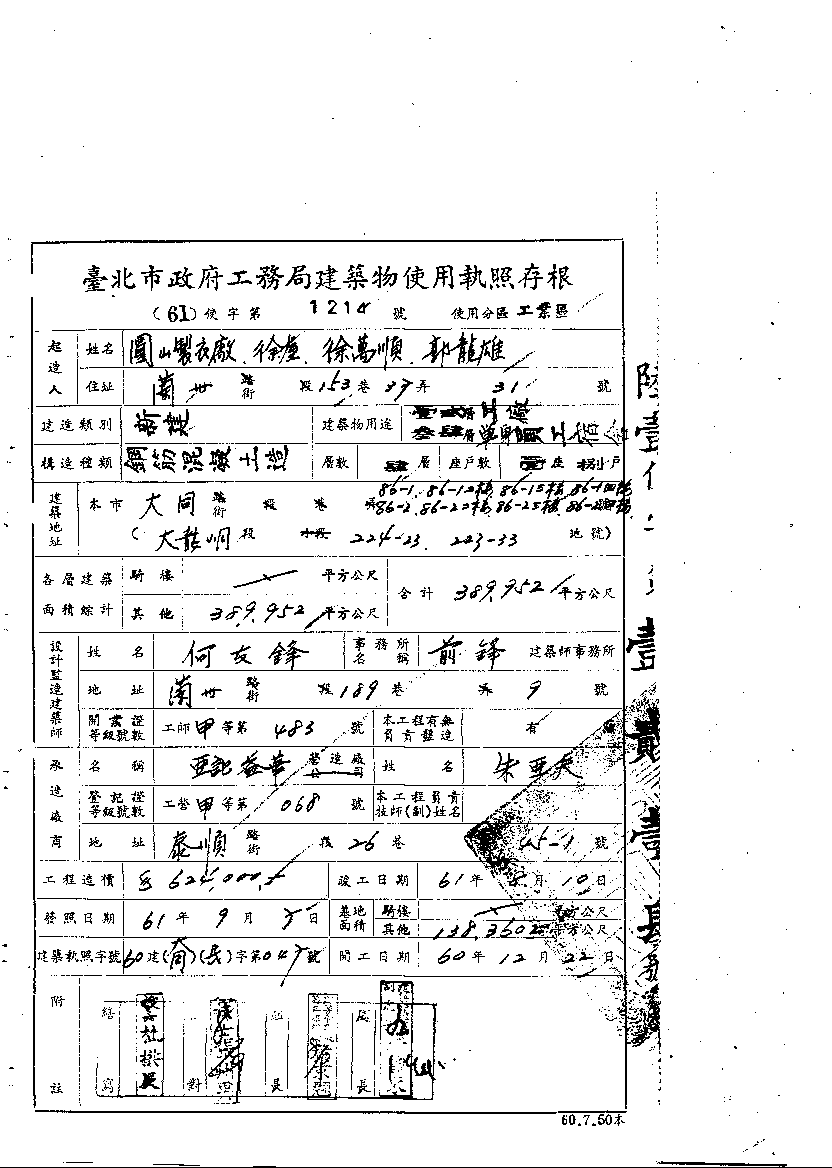 臺北市政府工務局建築物使用執照存根
(61)使字第 1214 號 使用分區 工業區
起造人 姓名 圓山製衣廠、徐 、徐萬順、郭龍雄
住址 蘭州 路街 段153巷37弄 31 號
建造類別 新建 建築物用途 壹貳層工廠
叁肆層單身員工宿舍
構造種類 鋼筋混凝土造 層數 肆層 座戶數 壹座 捌戶
建築地址 本市 大同 路街 段 巷 弄 86-1、86-12樓、86-15樓、86-1四樓
86-2、86-22樓、86-25樓、86-2四樓
(大龍峒段 小段 224-23、223-33 地號)
各層建築面積綜計 騎樓 平方公尺 合計 389.952平方公尺
其他 389.952 平方公尺
設計監造建築師 姓名 何友鋒 事務所名稱 前鋒 建築師事務所
地址 蘭州 路街 段189巷 弄 9 號
開業證等級號數 工師甲等第 483 號 本工程有無負責監造 有
承造廠商 名稱 亞記益華 營造廠公司 姓名 朱亞夫
登記證等級號數 工營甲等第 068 號 本工程負責技師(副)姓名
地址 泰順 路街 段26巷 45-1 號
工程造價 624,000 竣工日期 61年 8月 10日
發照日期 61年 9月 日 基地面積 騎樓 平方公尺
其他 138.3602平方公尺
建築執照字號 60建( )( )字第04 號 開工日期 60年 12月 22日
附註 繕寫 對 長 長
60.7.50本